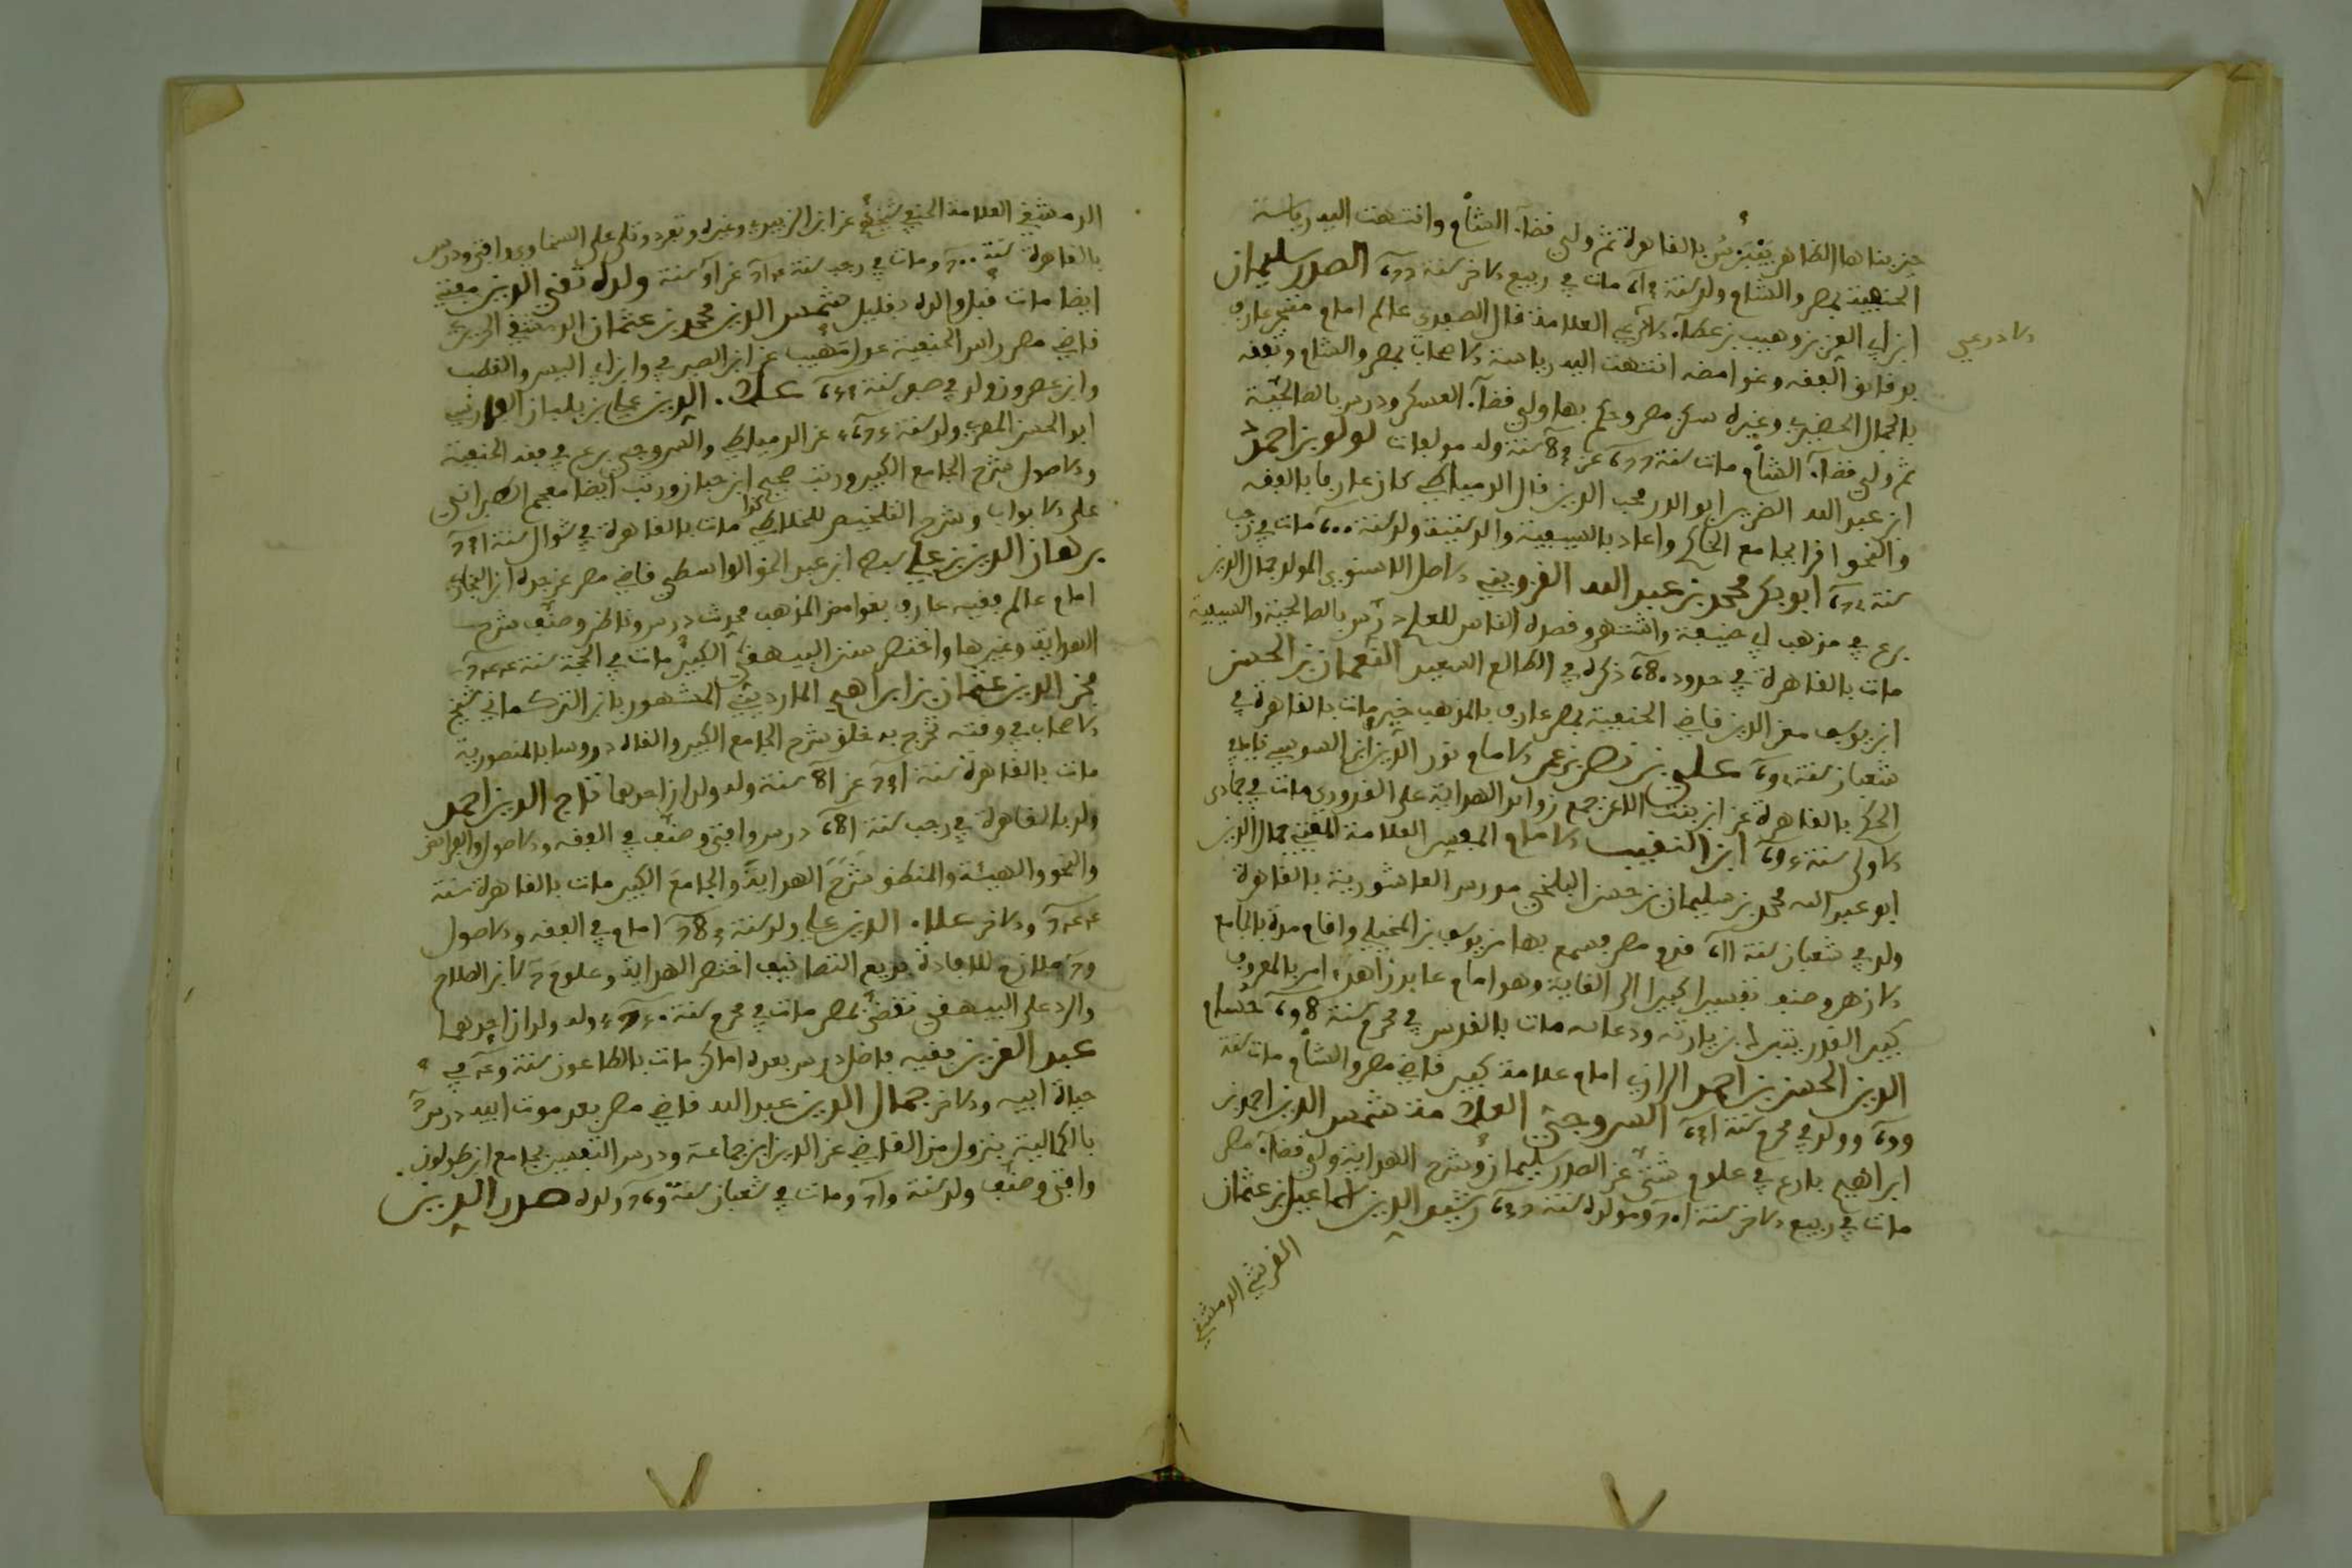 حين بناها الظاهر بيبرس بالقاهرة ثم ولي قضاء الشام وانتهت اليه رياسة
الحنفية بمصر والشام ولد سنة مات في ربيع الاخر سنة الصدر سليمان
ابن ابي العز بن وهيب بن عطاء الاذرعي العلامة قال الصفدي عالم امام متبحر عارف
الاذرعي
بدقائق الفقه وغوامضه انتهت اليه رياسة الاصحاب بمصر والشام وتفقه
بالجمال الحصيري وغيره سكن مصر وحكم بها وولي قضاء العسكر ودرس بالصالحية
ثم ولي قضاء الشام مات سنة عن سنة وله مولفات لولو بن احمد
ابن عبد الله الضرير ابو الدر محب الدين قال الدمياطي كان عارفا بالفقه
والنحو اقرا بجامع الحاكم واعاد بالسيفية ولد سنة مات في رجب
سنة ابو بكر محمد بن عبد الله القزويني الاصل الاسنوي المولد جمال الدين
برع في مذهب ابي حنيفة واشتهر وقصده الناس للعلم درس بالصالحية والسيفية
مات بالقاهرة في حدود ذكره في الطالع السعيد النعمان بن الحسن
ابن يوسف معز الدين قاضي الحنفية بمصر عارف بالمذهب خير مات بالقاهرة في
شعبان سنة علي بن نصر بن عمر الامام نور الدين ابن السوسي نايب
الحكم بالقاهرة عن ابن بنت الاعز جمع زوائد الهداية على القدوري مات في جمادى
الاولى سنة ابن النقيب الامام المفسر العلامة المفتي جمال الدين
ابو عبد الله محمد بن سليمان بن حسن البلخي مدرس العاشورية بالقاهرة
ولد في شعبان سنة قدم مصر فسمع بها من يوسف بن المخيلي واقام مدة بالجامع
الازهر وصنف تفسيرا كبيرا الى الغاية وهو امام عابد زاهد امر بالمعروف
كبير القدر يتبرك بزيارته ودعائه مات بالقدس في محرم سنة حسام
الدين الحسن بن احمد الرازي امام علامة كبير قاضي مصر والشام مات سنة
وولد في محرم سنة السروجي العلامة شمس الدين احمد بن
ابراهيم بارع في علوم شتى عن الصدر سليمان وشرح الهداية وولي قضاء مصر
مات في ربيع الاخر سنة ومولده سنة رشيد الدين اسماعيل بن عثمان
القرشي الدمشقي
الدمشقي العلامة الحنفي شيخ عن ابن الزبيدي وغيره وتفرد وتلى على السخاوي وافتى ودرس
بالقاهرة سنة ومات في رجب سنة عن سنة ولده تقي الدين مفتي
ايضا مات قبل والده بقليل شمس الدين محمد بن عثمان الدمشقي الحريري
قاضي مصر راس الحنفية عن ابن الصيرفي وابن ابي اليسر والقطب
وابن عصرون ولد في صفر سنة علاء الدين علي بن بلبان الفارسي
ابو الحسن المصري ولد سنة عن الدمياطي والسروجي برع في فقه الحنفية
والاصول شرح الجامع الكبير ورتب صحيح ابن حبان ورتب ايضا معجم الطبراني
على الابواب وشرح التلخيص للخلاطي مات بالقاهرة في شوال سنة
برهان الدين بن علي سبط ابن عبد الحق الواسطي قاضي مصر عن جده ابن البخاري
امام عالم فقيه عارف بغوامض المذهب محدث درس وناظر وصنف شرح
الهداية وغيرها واختصر سنن البيهقي الكبير مات في الحجة سنة
فخر الدين عثمان بن ابراهيم المارديني المشهور بابن التركماني شيخ
الاصحاب في وقته تخرج به خلق شرح الجامع الكبير والقاه دروسا بالمنصورية
مات بالقاهرة سنة عن سنة وله ولدان احدهما تاج الدين احمد
ولد بالقاهرة في رجب سنة درس وافتى وصنف في الفقه والاصول والفرائض
والنحو والهيئة والمنطق شرح الهداية والجامع الكبير مات بالقاهرة سنة
والاخر علاء الدين علي ولد سنة امام في الفقه والاصول
ملازم للافادة بديع التصانيف اختصر الهداية وعلوم لابن الصلاح
والرد على البيهقي مات في محرم سنة وله ولدان احدهما
عبد العزيز فقيه فاضل درس بعده اماكن مات بالطاعون سنة في
حياة ابيه والاخر جمال الدين عبد الله قاضي مصر بعد موت ابيه درس
بالكاملية بنزول من القاضي عز الدين ابن جماعة ودرس التفسير بجامع ابن طولون
وافتى وصنف ولد سنة ومات في شعبان سنة ولده صدر الدين